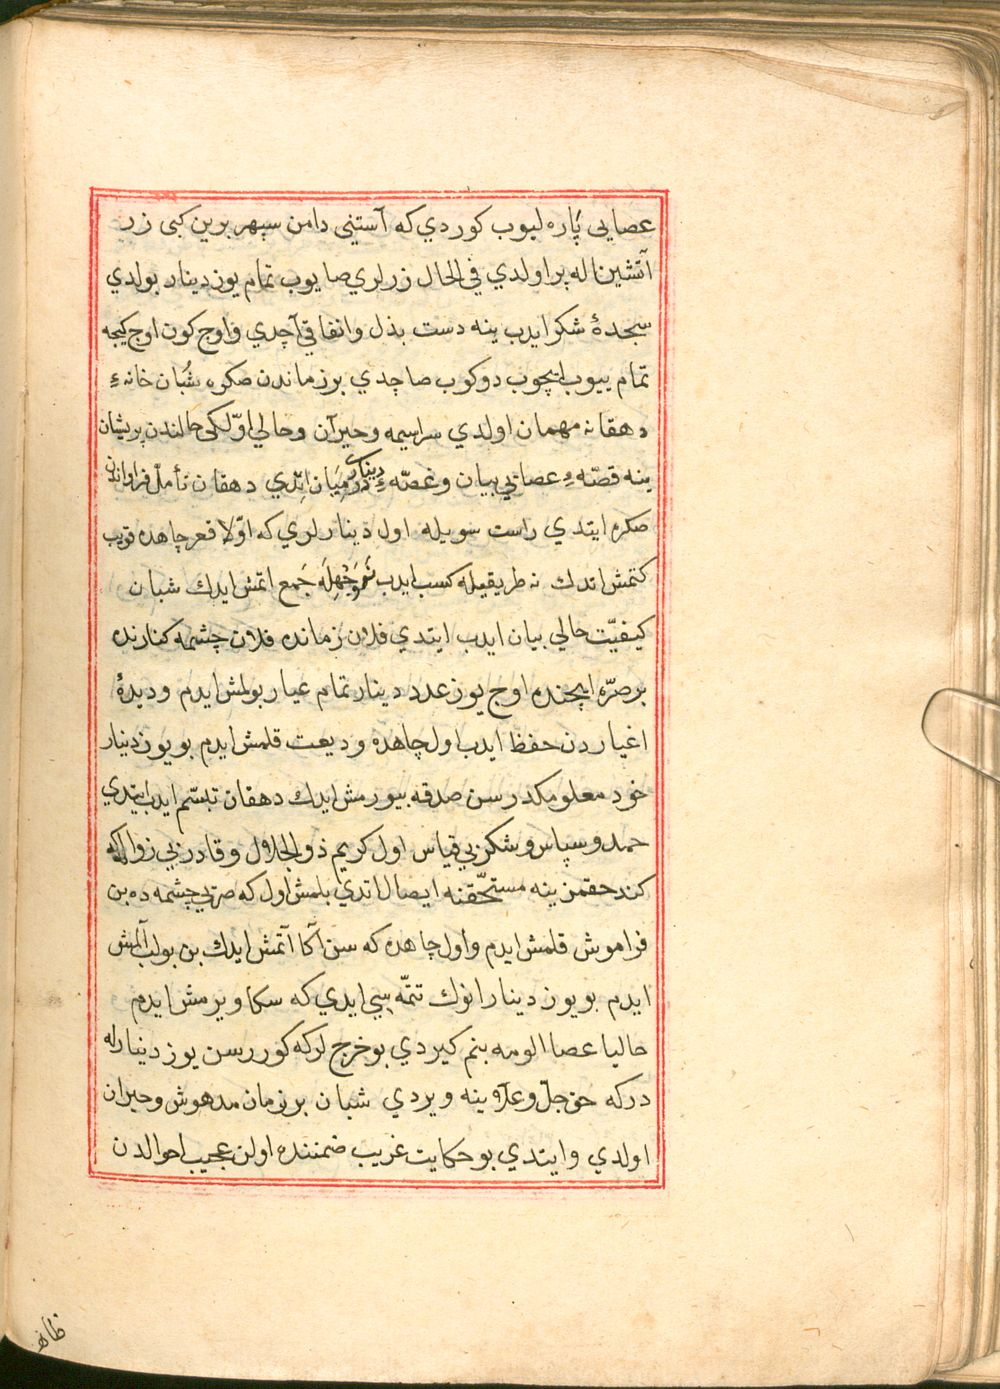 عصایی پاره لیوب كوردي كه آستینی دامن سپهر برین كبی زر
آتشین ناله پر اولدي في الحال زرلري صایوب تمام یوز دینار بولدي
سجدهٔ شكر ایدب ینه دست بذل وانفاقی آچدي و اوج كون اوج كیجه
تمام ییوب ایچوب دوكوب صاچدي بر زماندن صكره شُبان خانهٔ
دهقانه مهمان اولدي سراسیمه وحیرآن وحالي اوّلكی حالندن پریشان
ینه قصّهٔ عصایي بیان وغصّهٔ دیناری درمیان ایتدي دهقان تأمل فراواندن
صكره ایتدي راست سویله اول دینارلري كه اوّلا قعر چاهده غریب
كتمش اتدك نه طریقیله كسب ایدب نه وجهله جمع اتمش ایدك شبان
كیفیّت حالي بیان ایدب ایتدي فلان زمانده فلان چشمه كنارنده
بر صرّه ایچنده اوج یوز عدد دینار تمام عیار بولمش ایدم ودیدهٔ
اغیاردن حفظ ایدب اول چاهده ودیعت قلمش ایدم بو یوز دینار
خود معلومكدر سن صدقه بیورمش ایدك دهقان تبسّم ایدب ایتدي
حمد و سپاس و شكر بي قیاس اول كریم ذو الجلال و قادر بي زواله كه
كندحقمز ینه مستحّقنه ایصال اتدي بلمش اول كه صرّیي چشمه ده بن
فراموش قلمش ایدم و اول چاهده كه سن آكا آتمش ایدك بن بولب آلمش
ایدم بو یوز دینار انوك تتمّه سیي ایدي كه سكا ویرمش ایدم
حالیا عصا الومه بنم كیردي بو خرج لركه كوررسن یوز دینارله
دركه حق جلّ وعلا ینه ویردي شبان بر زمان مدهوش وحیران
اولدي و ایتدي بو حكایت غریب ضمننده اولن عجیب احوالدن
ظاهر